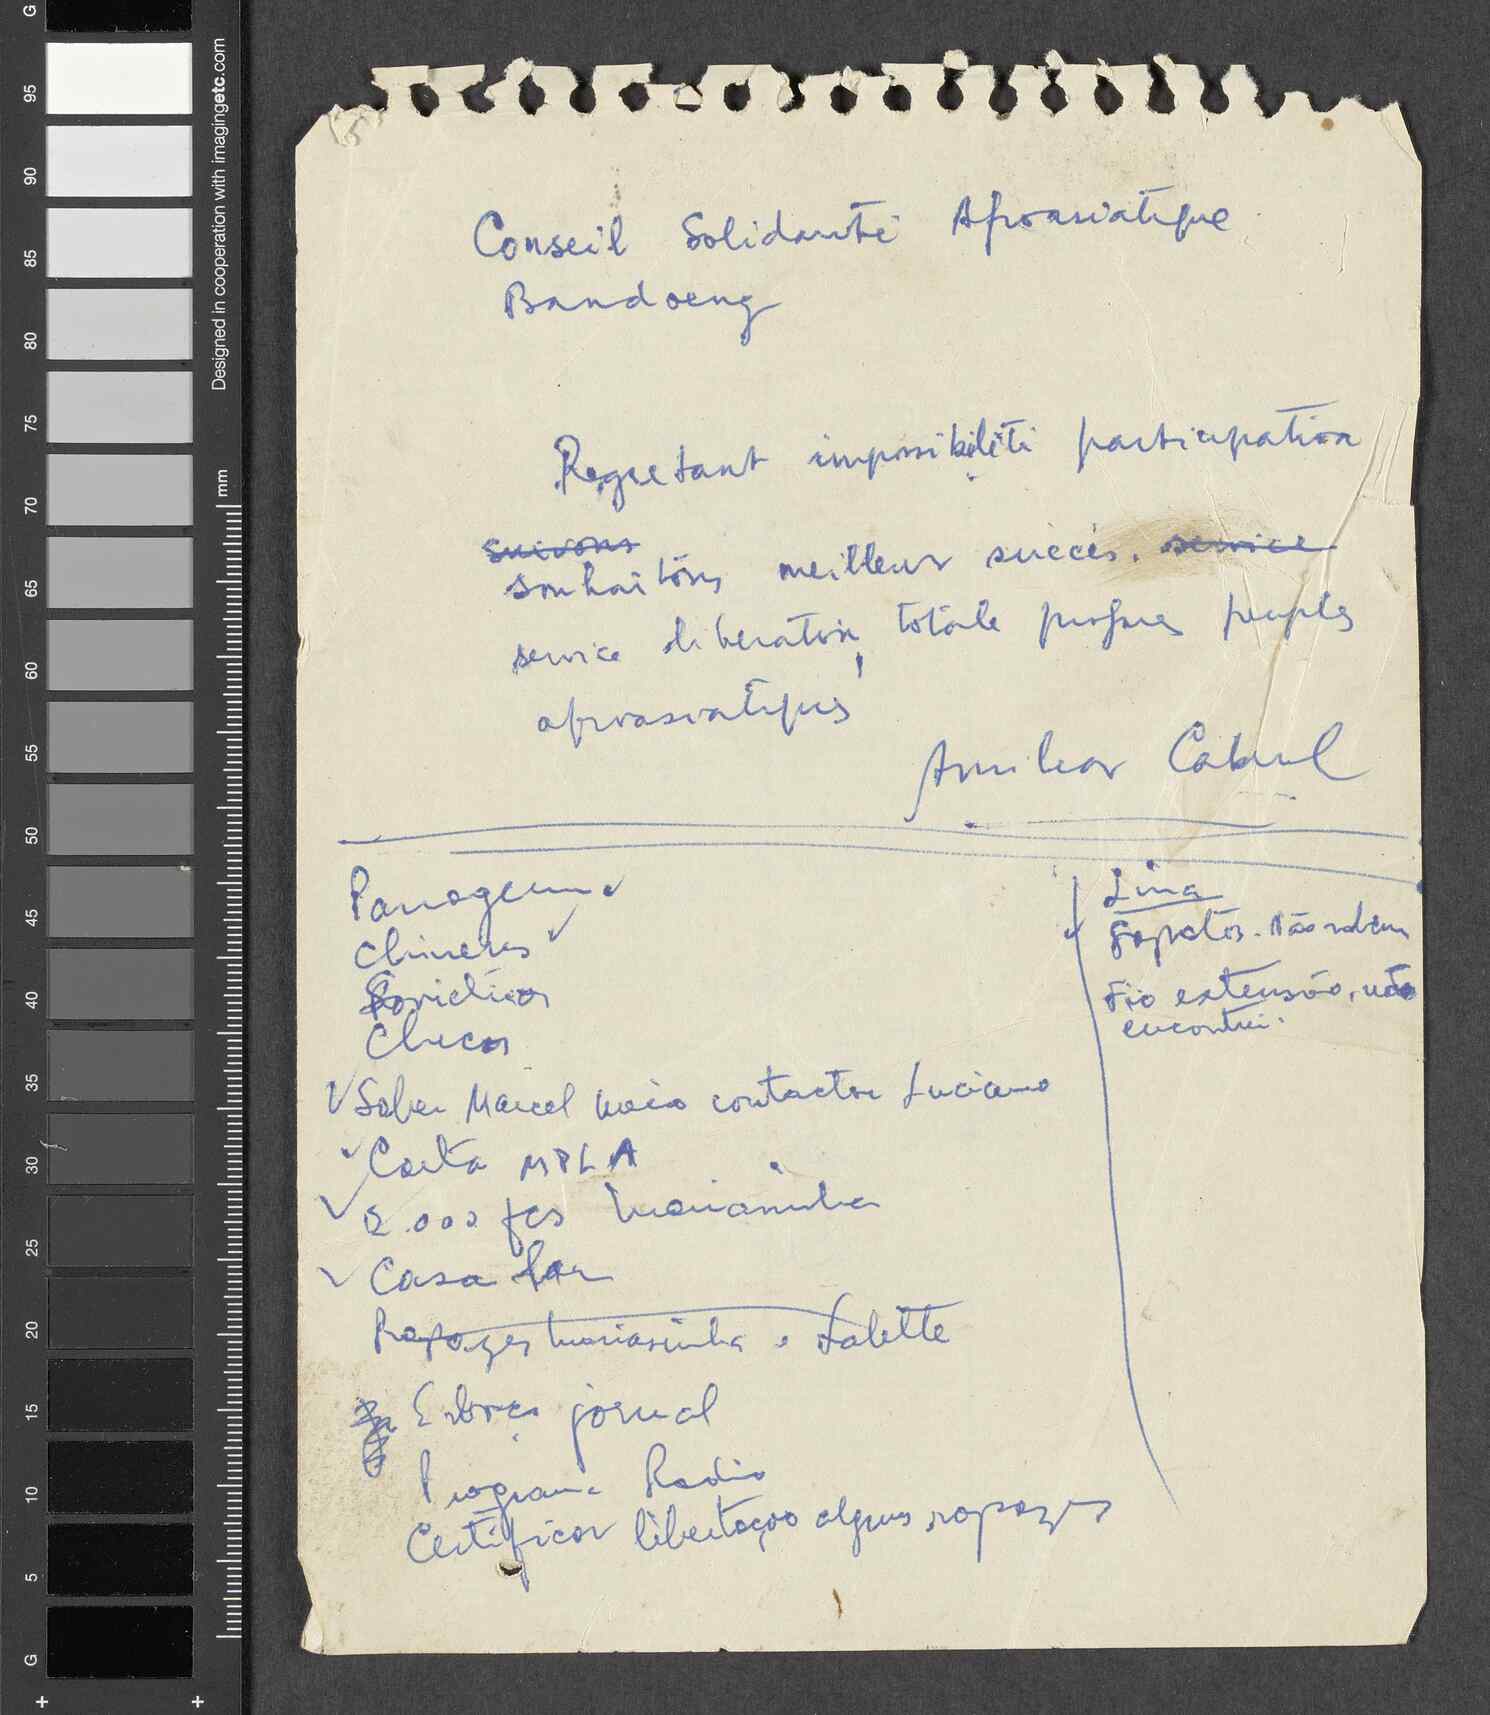 Conseil Solidarité Afroasiatique
Bandoeng
Regretant impossibilité participation
suivons
souhaitons meilleur succès. service
service liberation totale progres peuples
afroasiatiques
Amilcar Cabral
Chineses
Soviéticos
Checos
Saber Marcel contactar Luciano
Carta MPLA
2.000 fcs Mariazinha
Casa
Rapazes Mariazinha e Lalette
jornal
Programa Radio
Certificar libertação alguns rapazes
Lina
Sapatos. Não
Fio extensão, não
encontrei.
Designed in cooperation with imagingetc.com
mm
G
95
90
85
80
75
70
65
60
55
50
45
40
35
30
25
20
15
10
5
G